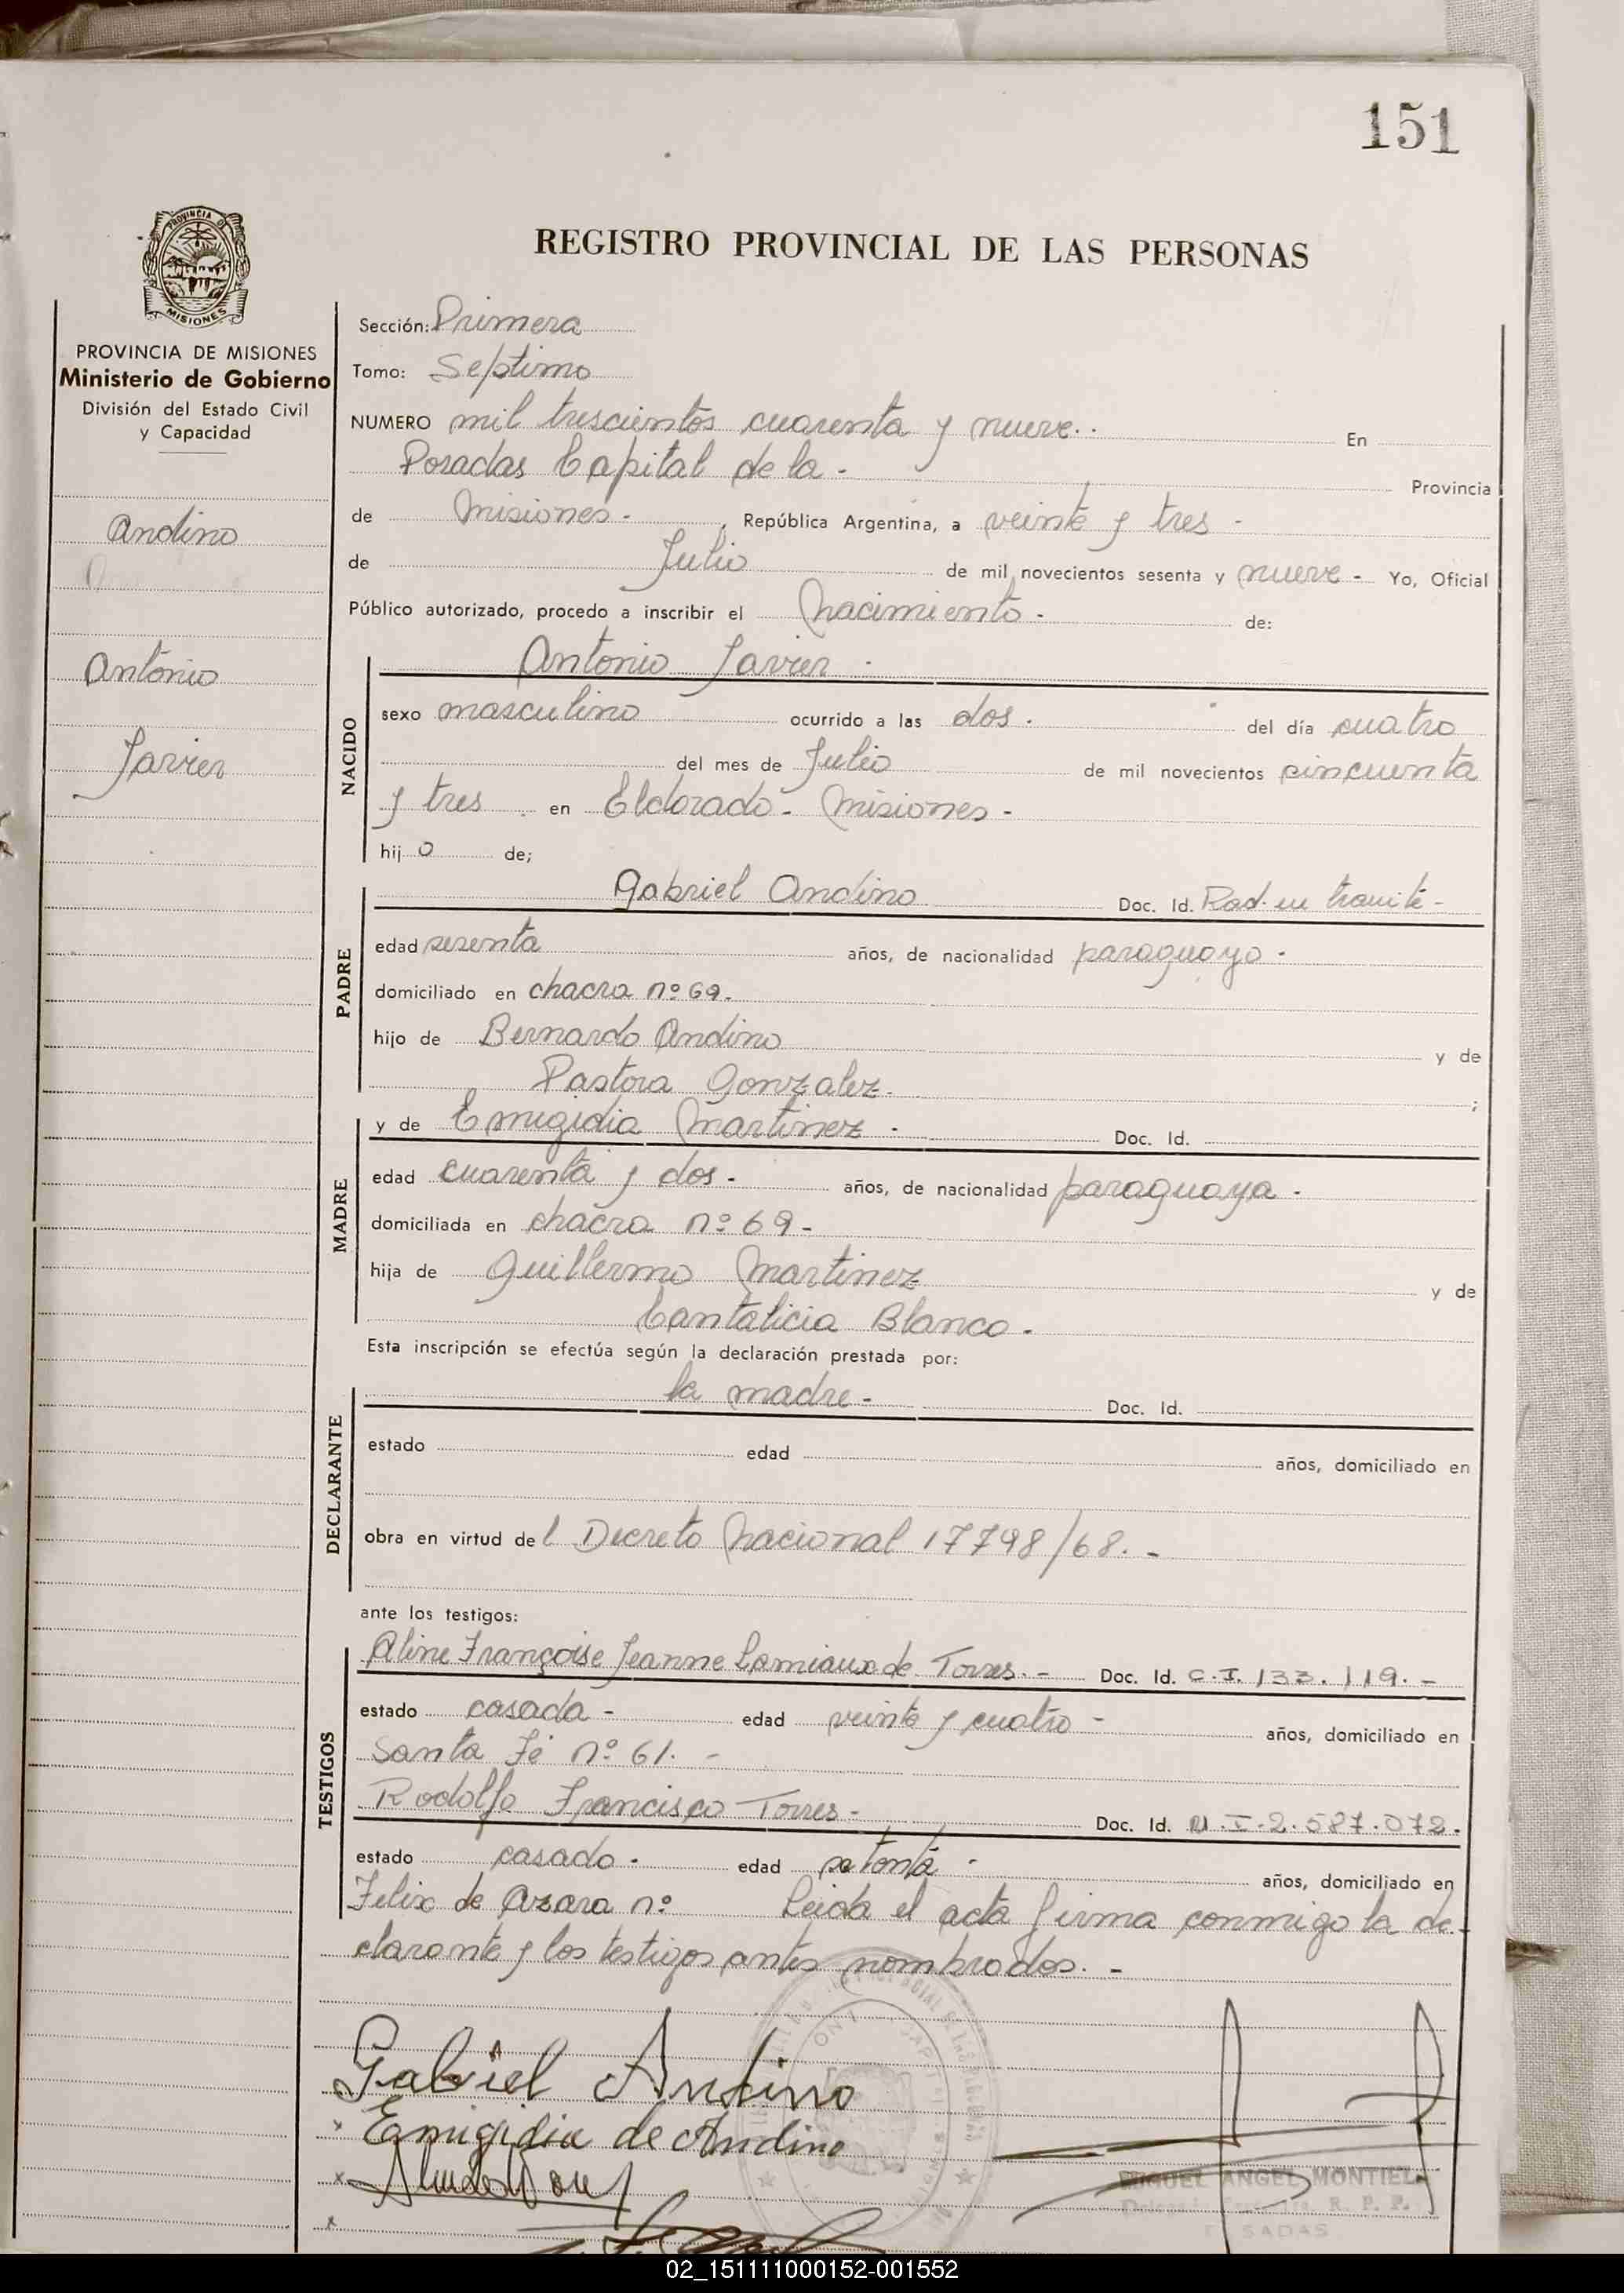 151
REGISTRO PROVINCIAL DE LAS PERSONAS
PROVINCIA DE
MISIONES
PROVINCIA DE MISIONES
Ministerio de Gobierno
División del Estado Civil
y Capacidad
Andino
Antonio
Javier
Sección: Primera
Tomo: Septimo
NUMERO mil trescientos cuarenta y nueve.. En
Posadas Capital de la - Provincia
de Misiones - , República Argentina, a veinte y tres -
de Julio de mil novecientos sesenta y nueve - Yo, Oficial
Público autorizado, procedo a inscribir el Nacimiento - de:
Antonio Javier -
NACIDO
sexo masculino ocurrido a las dos. del día cuatro
del mes de Julio de mil novecientos cincuenta
y tres en Eldorado - Misiones -
hij o de;
PADRE
Gabriel Andino Doc. Id. Rad. en tramite -
edad sesenta años, de nacionalidad paraguayo -
domiciliado en chacra nº 69.
hijo de Bernardo Andino y de
Pastora Gonzalez. ;
MADRE
y de Emigidia Martinez - Doc. Id.
edad cuarenta y dos - años, de nacionalidad paraguaya -
domiciliada en chacra nº 69 -
hija de Guillermo Martinez y de
Cantalicia Blanco.
Esta inscripción se efectúa según la declaración prestada por:
DECLARANTE
la madre - Doc. Id.
estado edad años, domiciliado en
obra en virtud de l Decreto Nacional 17798/68. -
ante los testigos:
TESTIGOS
Aline Françoise Jeanne Lamiaux de Torres. - Doc. Id. C.I. 133.119. -
estado casada - edad veinte y cuatro - años, domiciliado en
Santa Fé nº 61. -
Rodolfo Francisco Torres - Doc. Id. M.I-2.587.072.
estado casado - edad setenta - años, domiciliado en
Felix de Azara nº Leida el acta firma conmigo la de-
clarante y los testigos antes nombrados. -
Gabriel Andino
x Emigidia de Andino
x
x
MIGUEL ANGEL MONTIEL
R. P. P.
POSADAS
02_151111000152-001552